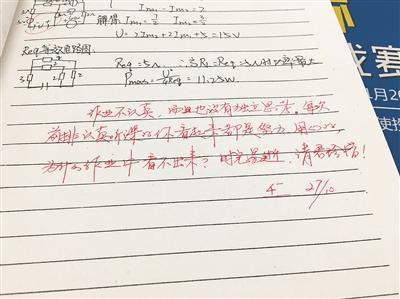 Im₁ = Im₂ = 2
解得 Im₁ = 7/2 Im₂ = 3/2
U = 2Im₂ + 2Im₁ + 5 = 15V
Req等效电路图:
Req = 5Ω ∴当RL=Req=5Ω时功率最大
Pmax = U²/4Req = 11.25W.
作业不认真，而且也没有独立思考。每次
前排认真听课的你看起来都是努力、用心的，
为什么作业中看不出来？时光易逝，请君珍惜！
27/10